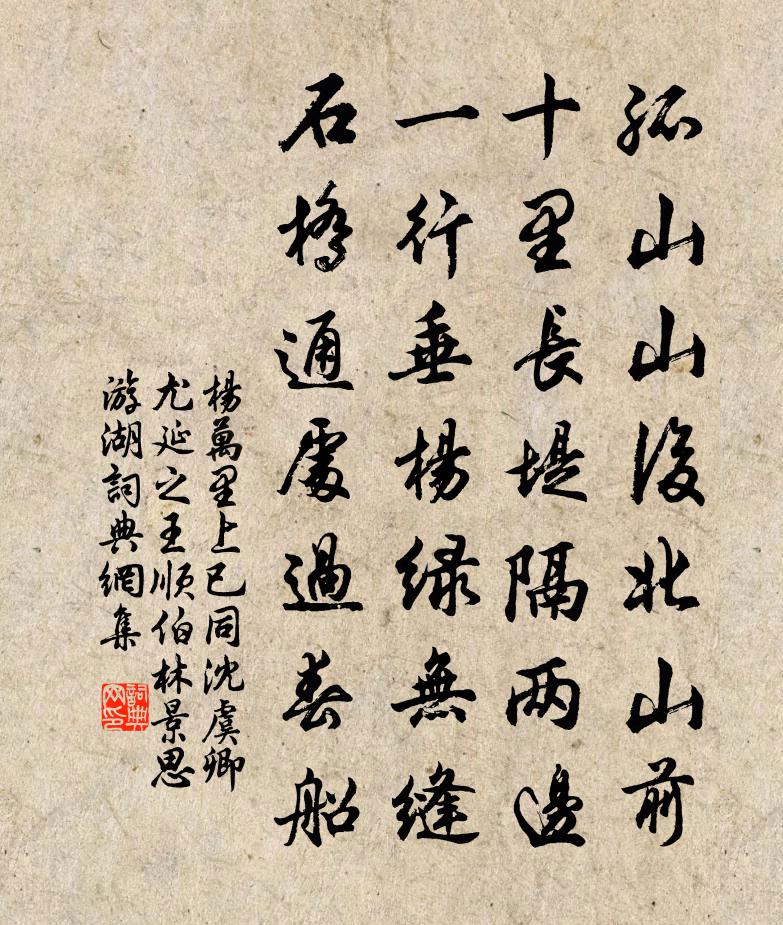 孤山山後北山前
十里長堤隔两邊
一行垂楊緑無縫
石橋通處過春船
楊萬里上巳同沈虞卿
尤延之王順伯林景思
游湖詞典網集
詞典
网印